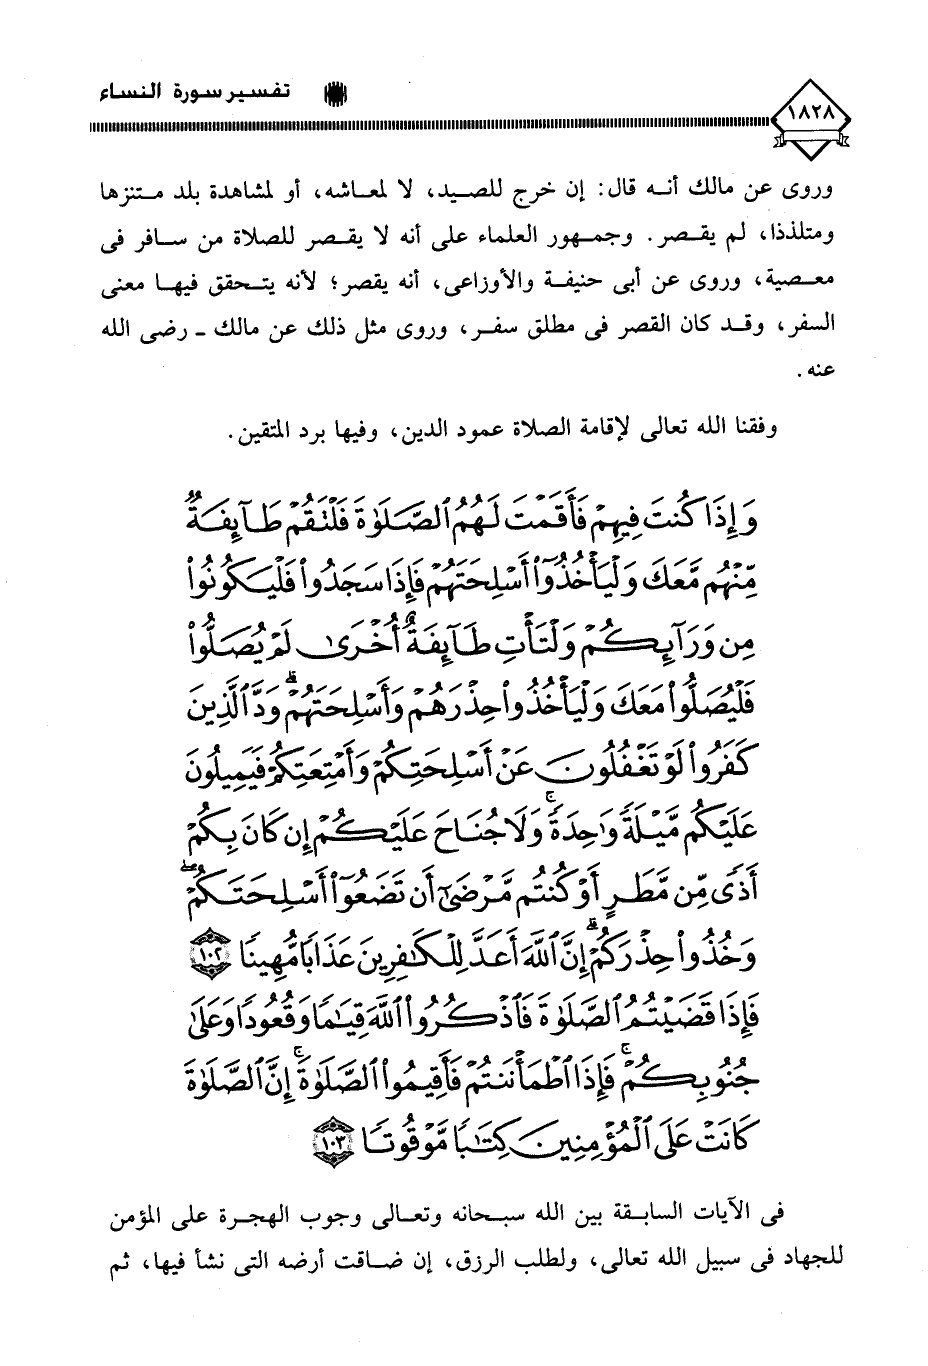 ١٨٢٨
تفسير سورة النساء
وروى عن مالك أنه قال: إن خرج للصيد، لا لمعاشه، أو لمشاهدة بلد متنزها
ومتلذذا، لم يقصر. وجمهور العلماء على أنه لا يقصر للصلاة من سافر فى
معصية، وروى عن أبى حنيفة والأوزاعى، أنه يقصر؛ لأنه يتحقق فيها معنى
السفر، وقد كان القصر فى مطلق سفر، وروى مثل ذلك عن مالك ـ رضى الله
عنه.
وفقنا الله تعالى لإقامة الصلاة عمود الدين، وفيها برد المتقين.
وَإِذَا كُنتَ فِيهِمْ فَأَقَمْتَ لَهُمُ ٱلصَّلَوٰةَ فَلْتَقُمْ طَآئِفَةٌ
مِّنْهُم مَّعَكَ وَلْيَأْخُذُوٓا۟ أَسْلِحَتَهُمْ فَإِذَا سَجَدُوا۟ فَلْيَكُونُوا۟
مِن وَرَآئِكُمْ وَلْتَأْتِ طَآئِفَةٌ أُخْرَىٰ لَمْ يُصَلُّوا۟
فَلْيُصَلُّوا۟ مَعَكَ وَلْيَأْخُذُوا۟ حِذْرَهُمْ وَأَسْلِحَتَهُمْ ۗ وَدَّ ٱلَّذِينَ
كَفَرُوا۟ لَوْ تَغْفُلُونَ عَنْ أَسْلِحَتِكُمْ وَأَمْتِعَتِكُمْ فَيَمِيلُونَ
عَلَيْكُم مَّيْلَةً وَٰحِدَةً ۚ وَلَا جُنَاحَ عَلَيْكُمْ إِن كَانَ بِكُمْ
أَذًى مِّن مَّطَرٍ أَوْ كُنتُم مَّرْضَىٰٓ أَن تَضَعُوٓا۟ أَسْلِحَتَكُمْ ۖ
وَخُذُوا۟ حِذْرَكُمْ ۗ إِنَّ ٱللَّهَ أَعَدَّ لِلْكَٰفِرِينَ عَذَابًا مُّهِينًا ١٠٢
فَإِذَا قَضَيْتُمُ ٱلصَّلَوٰةَ فَٱذْكُرُوا۟ ٱللَّهَ قِيَٰمًا وَقُعُودًا وَعَلَىٰ
جُنُوبِكُمْ ۚ فَإِذَا ٱطْمَأْنَنتُمْ فَأَقِيمُوا۟ ٱلصَّلَوٰةَ ۚ إِنَّ ٱلصَّلَوٰةَ
كَانَتْ عَلَى ٱلْمُؤْمِنِينَ كِتَٰبًا مَّوْقُوتًا ١٠٣
فى الآيات السابقة بين الله سبحانه وتعالى وجوب الهجرة على المؤمن
للجهاد فى سبيل الله تعالى، ولطلب الرزق، إن ضاقت أرضه التى نشأ فيها، ثم